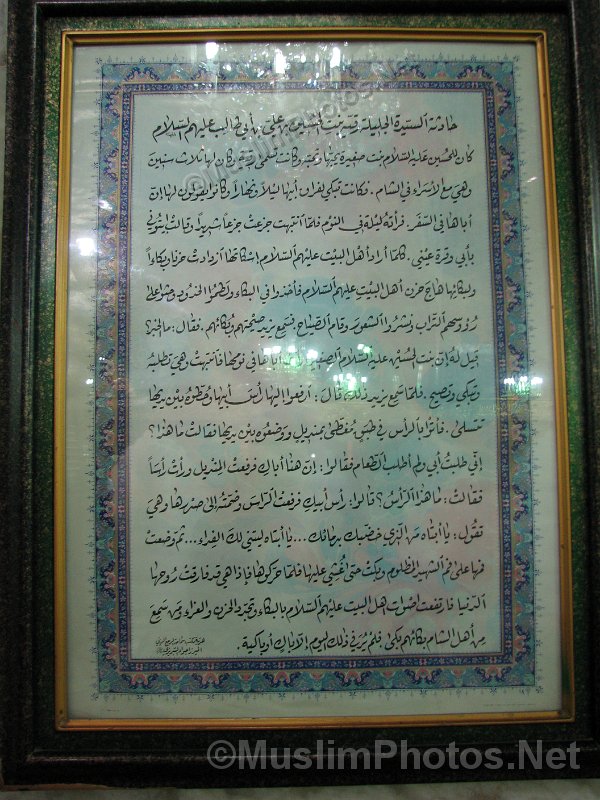 حادثة السيدة الجليلة رقية بنت الحسين بن علي بن أبي طالب عليهم السلام
كان للحسين عليه السلام بنت صغيرة يحبها وتحبه وكانت تسمى رقية وكان لها ثلاث سنين
وهي مع الأسراء في الشام . فكانت تبكي لفراق أبيها ليلاً ونهاراً وكانوا يقولون لها إن
أباها في السفر . فرأته ليلة في النوم فلما انتبهت جزعت جزعاً شديداً وقالت ايتوني
بأبي وقرة عيني . كلما أراد أهل البيت عليهم السلام اسكاتها ازدادت حزناً وبكاءاً
ولبكائها هاج حزن أهل البيت عليهم السلام فأخذوا في البكاء ولطموا الخدود وحثوا على
رؤوسهم التراب ونشروا الشعور وقام الصياح فسمع يزيد صيحتهم وبكائهم . فقال : ما الخبر؟
قيل له إن بنت الحسين عليه السلام الصغيرة رأت أباها في نومها فانتبهت وهي تطلبه
وتبكي وتصيح . فلما سمع يزيد ذلك قال : ارفعوا إليها رأس أبيها وحطوه بين يديها
تتسلى . فأتوا بالرأس في طبق مغطى بمنديل ووضعوه بين يديها فقالت ما هذا ؟
إني طلبت أبي ولم أطلب الطعام فقالوا : إن هنا أباك فرفعت المنديل ورأت رأساً
فقالت : ما هذا الرأس ؟ قالوا : رأس أبيك فرفعت الرأس وضمته إلى صدرها وهي
تقول : يا أبتاه من الذي خضبك بدمائك ... يا أبتاه ليتني لك الفداء ... ثم وضعت
فمها على فم الشهيد المظلوم وبكت حتى أغشي عليها فلما حركوها فإذا هي قد فارقت روحها
الدنيا فارتفعت أصوات اهل البيت عليهم السلام بالبكاء وتجدد الحزن والعزاء ومن سمع
من أهل الشام بكائهم بكى . فلم ير في ذلك اليوم إلا باك أو باكية .
©MuslimPhotos.Net
©MuslimPhotos.Net